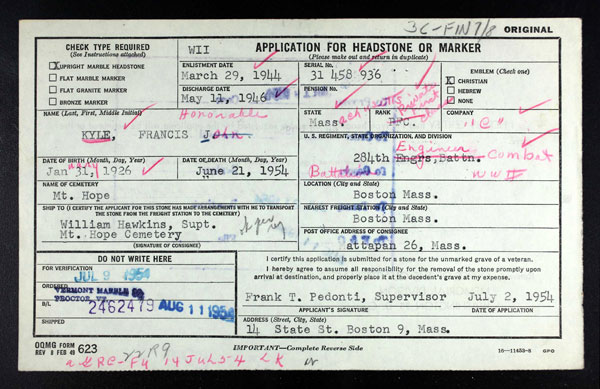 3C-FIN 7/8 ORIGINAL
CHECK TYPE REQUIRED
(See Instructions attached)
UPRIGHT MARBLE HEADSTONE
FLAT MARBLE MARKER
FLAT GRANITE MARKER
BRONZE MARKER
WII
APPLICATION FOR HEADSTONE OR MARKER
(Please make out and return in duplicate)
ENLISTMENT DATE
March 29, 1944
SERIAL No.
31 458 936
EMBLEM (Check one)
X CHRISTIAN
HEBREW
NONE
DISCHARGE DATE
May 11, 1946
PENSION No.
Honorable
NAME (Last, First, Middle Initial)
KYLE, FRANCIS John
STATE
Mass.
RANK
PFC.
Private First Class
COMPANY
"C"
U. S. REGIMENT, STATE ORGANIZATION, AND DIVISION
284th Engrs,Battn.
Engineer Combat
Battalion
WW II
DATE OF BIRTH (Month, Day, Year)
Jan 31, 1926
uary
DATE OF DEATH (Month, Day, Year)
June 21, 1954
NAME OF CEMETERY
Mt. Hope
LOCATION (City and State)
Boston Mass.
SHIP TO (I CERTIFY THE APPLICANT FOR THIS STONE HAS MADE ARRANGEMENTS WITH ME TO TRANSPORT
THE STONE FROM THE FREIGHT STATION TO THE CEMETERY)
William Hawkins, Supt.
Mt. Hope Cemetery
(SIGNATURE OF CONSIGNEE)
NEAREST FREIGHT STATION (City and State)
Boston Mass.
POST OFFICE ADDRESS OF CONSIGNEE
attapan 26, Mass.
DO NOT WRITE HERE
FOR VERIFICATION
JUL 9 1954
ORDERED
VERMONT MARBLE CO.
PROCTOR, VT.
B/L
2462479 AUG 11 1954
SHIPPED
I certify this application is submitted for a stone for the unmarked grave of a veteran.
I hereby agree to assume all responsibility for the removal of the stone promptly upon
arrival at destination, and properly place it at the decedent's grave at my expense.
Frank T. Pedonti, Supervisor July 2, 1954
APPLICANT'S SIGNATURE DATE OF APPLICATION
ADDRESS (Street, City, State)
14 State St. Boston 9, Mass.
OQMG FORM
REV 8 FEB 49 623
IMPORTANT—Complete Reverse Side
16—11453-8 GPO
14 JUL 54 LK